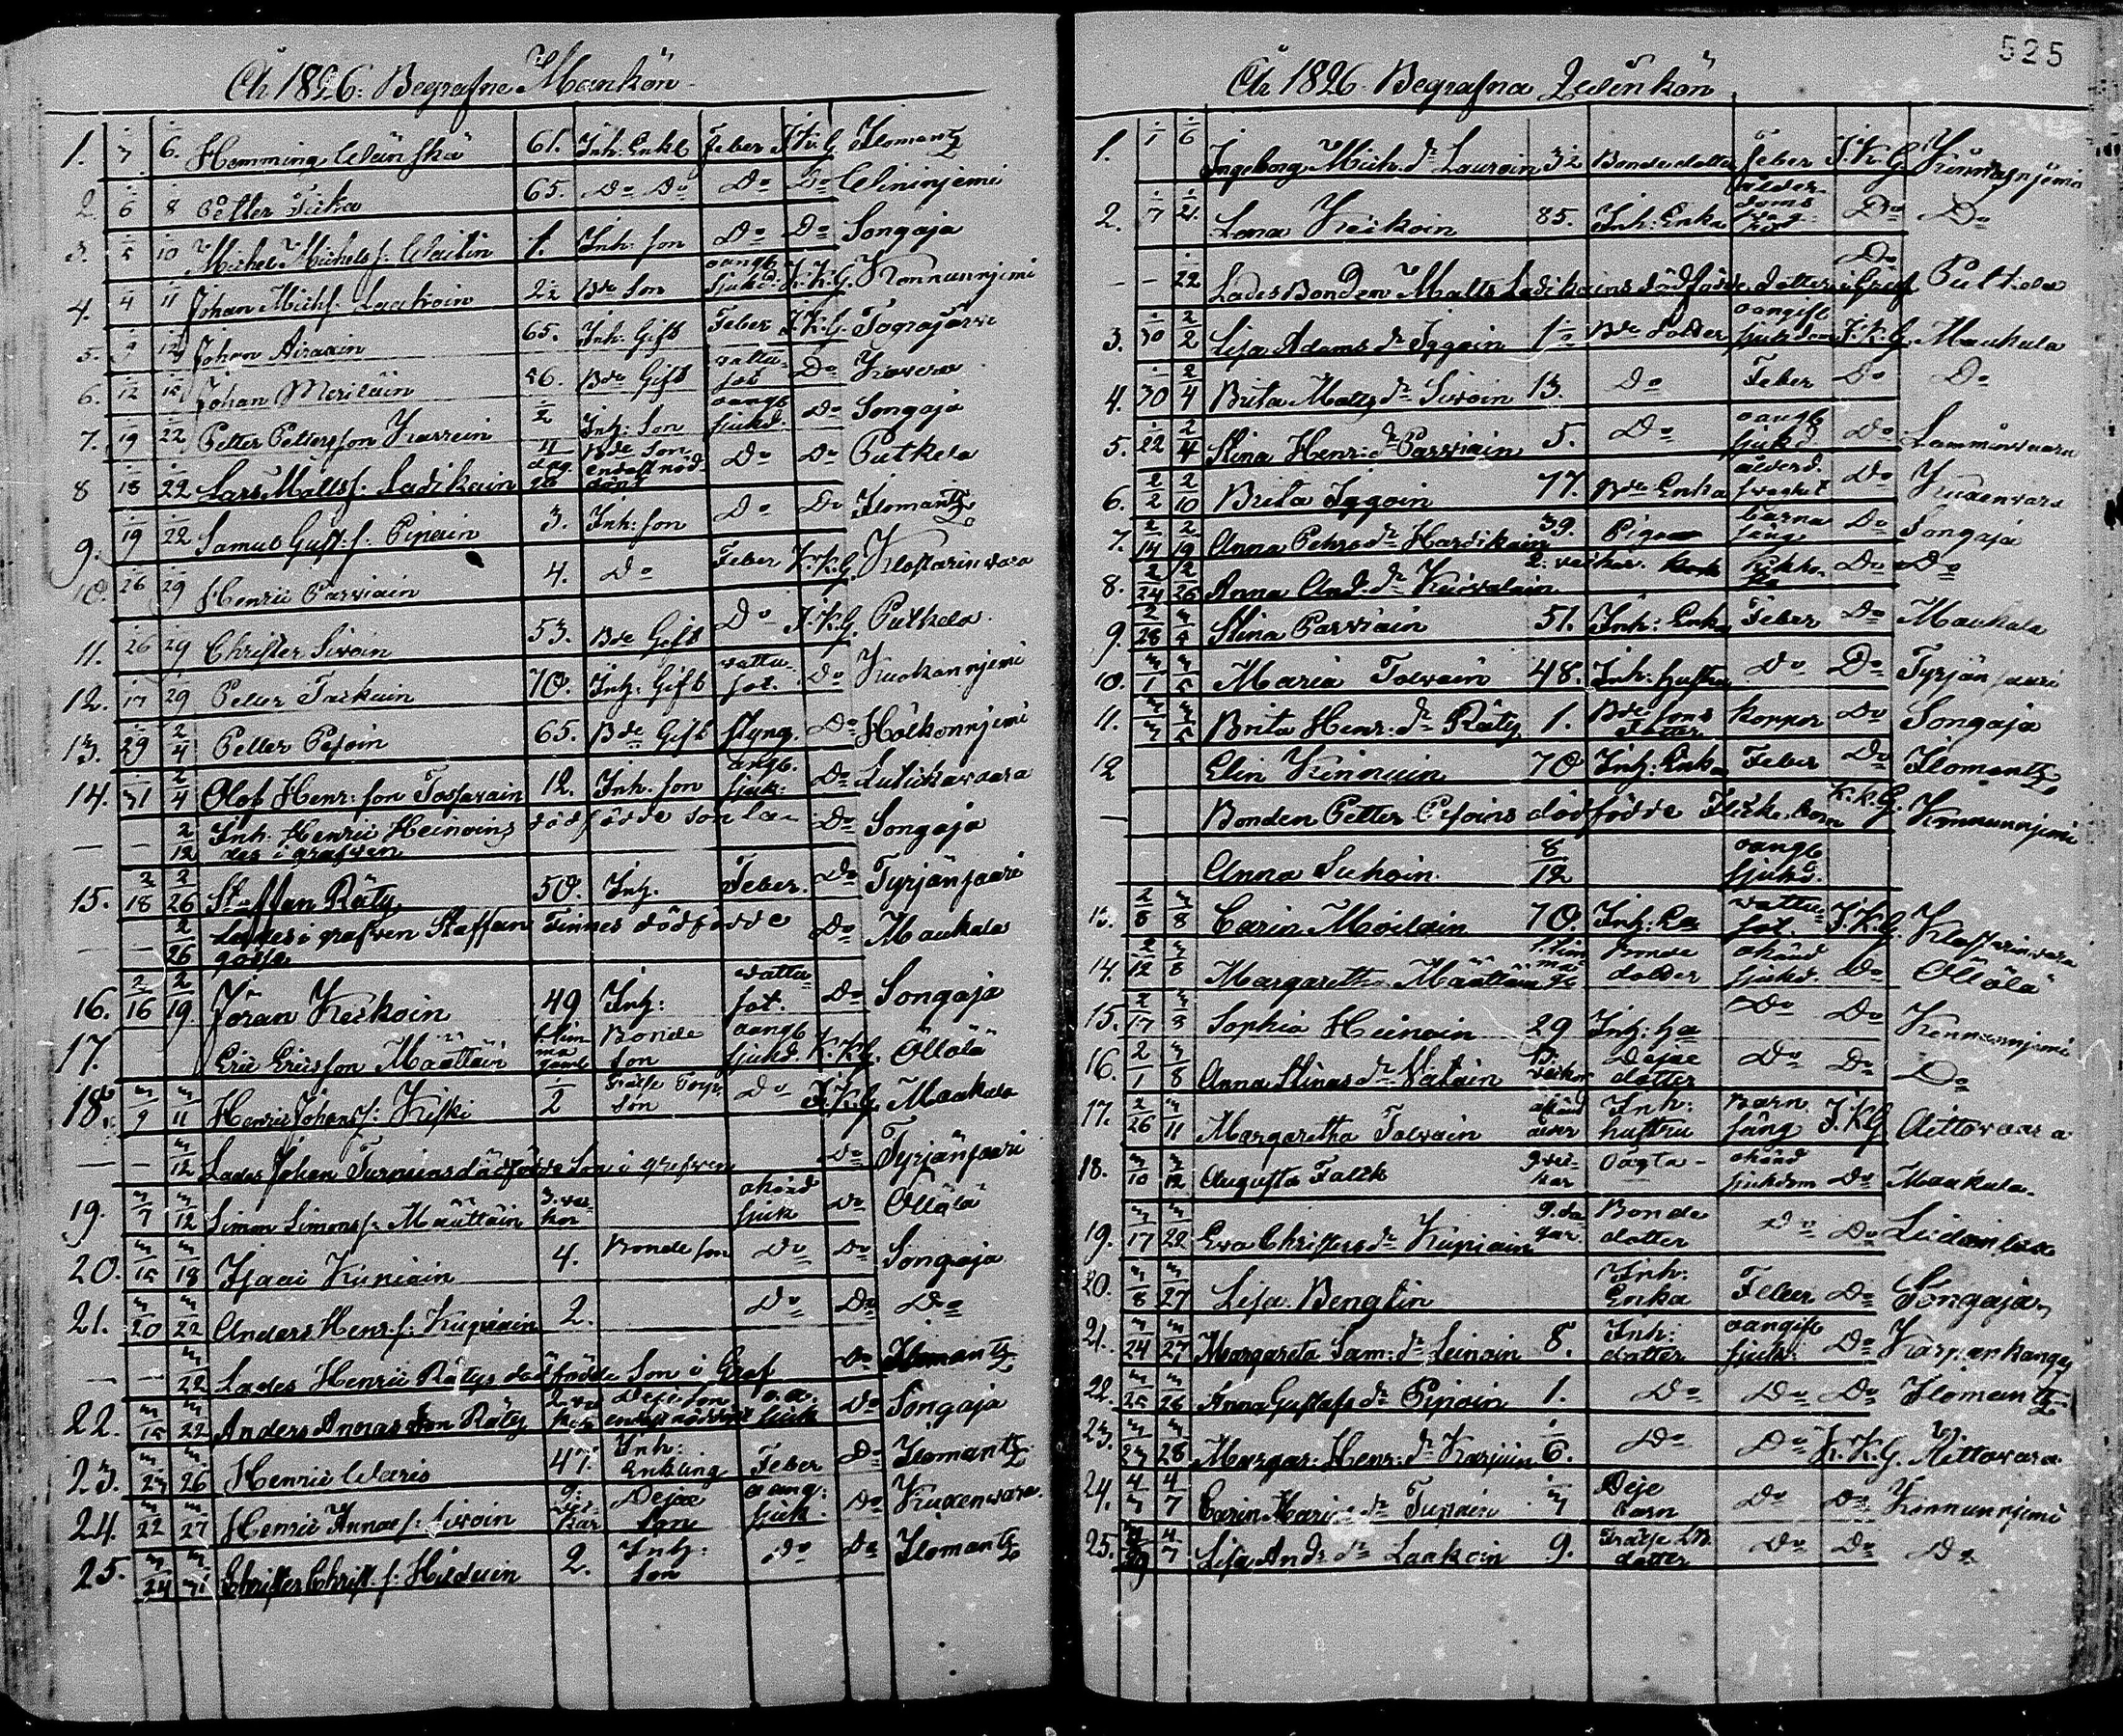 525
År 1826. Begrafne Mankön
1. 1/3 1/6. Hemming Wänskä 61. Inh: Enkl Feber J.K.G. Ilomantz
2. 1/6 1/8 Petter Ticka 65. Do Do Do Do Wininjemi
3. 1/5 1/10 Michel Michels s. 1. Inh: son Do Do Songaja
4. 1/4 1/11 Johan Michs. 2½ Bde son oangb sjukd. K.K.G. Konnunnjemi
5. 1/9 1/12 Johan Airaxin 65. Inh: Gift Feber J.K.G. Tograjärvi
6. 1/12 1/15 Johan Meriläin 56. Bde Gift vattusot Do Kovero
7. 1/19 1/22 Petter Pettersson ½ Inh: son oangb sjukd. Do Songaja
8 1/18 1/22 Lars Matts s. Ladikain Bde son endast nöddöpt Do Do Putkela
9. 1/19 1/22 Samuel Gust: s. Pipoin 3. Inh: son Do Do Ilomantz
10. 1/26 1/29 Henric Parviain 4. Do Feber K.K.G. Klostarinvara
11. 1/26 1/29 Christer Sivoin 53. Bde Gift Do J.K.G. Putkela
12. 1/17 1/29 Petter 70. Inh: Gift vattusot. Do Kuokannjemi
13. 1/29 2/4 Petter Pesoin 65. Bde Gift styng. Do Hölkönnjemi
14. 1/31 2/4 Olof Henr: son Tossavain 12. Inh. son angb. sjuk: Do Lutickavaara
— — 2/12 Inh: Henric Heinoins dödfödde son lades i grafven Do Songaja
15. 2/18 2/26 Staffan Räty 50. Inh. Feber. Do Tyrjänsaari
— — 2/26 Lades i grafven Staffan Tinnes dödfödde gosse Do Maukala
16. 2/16 2/19 Jöran Keikoin 49 Inh: vattusot. Do Songaja
17. Eric Ericsson Määttäin 1. timma gaml Bonde son oangb sjukd. K.K.G. Öllölä
18. 3/9 3/11 Henric Johans s: Kiski ½ son Do J.K.G. Maukala
— — 3/12 Lades Johan Turuins dödfödde son i grafven Do Tyrjänsaari
19. 3/7 3/12 Simon Simons s: Määttäin 3. veckor okänd sjuk Do Öllölä
20. 3/15 3/18 Isaac Kupiain 4. Bonde son Do Do Songaja
21. 3/20 3/22 Anders Henr. s. Kupiain 2. Do Do Do
— — 3/22 Lades Henric Rätys dödfödde son i Graf Do Ilomantz
22. 3/15 3/22 Anders Annas son Räty Deje son sjuk Do Songaja
23. 3/23 3/26 Henric Waris 47. Inh: Enkling Feber Do Ilomantz
24. 3/22 3/27 Henric Annæ s: Sivoin 9: veckar Dejæ son oang: sjuk. Do Kuxenvara.
25. 3/24 3/31 Christer Christ. s. Hilduin 2. Inh: son Do Do Ilomantz
År 1826 Begrafna Qvinkön
1. 1/1 1/6 Ingeborg Mich. dr Lauroin 32 Bondedotter Feber J.K.G. Kinnasnjemi
2. 1/7 1/21 Lena Keikoin 85. Inh: Enka ålderdoms svaghet Do Do
— — 1/22 Lades Bonden Matts Ladikains dödfödde dotter i Graf Do Putkela
3. 1/30 2/2 Lisa Adams dr Iggoin 1½ Bde dotter oangift sjukdom J.K.G. Maukula
4. 1/30 2/4 Brita Matts dr Sivoin 13. Do Feber Do Do
5. 1/22 2/4 Stina Henr: dr Parviain 5. Do oangb sjukd Do
6. 2/2 2/10 Brita Iggoin 77. Bde Enka ålderd. svaghet Do Kuxenvara
7. 2/14 2/19 Anna Pehrs dr Hardikain 39. Piga barnsäng Do Songaja
8. 2/24 2/26 Anna And. dr 2. veckor kikhosta Do Do
9. 2/28 3/5 Stina Parviain 51. Inh: Enka Feber Do Maukala
10. 3/1 3/5 Maria Tolvain 48. Inh: hustru Do Do Tyrjänsaari
11. 3/3 3/5 Brita Henr: dr Räty 1. Bde sons dotter koppor Do Songaja
12 Elin Kinnuin 70 Inh: Enka Feber Do Ilomantz
— Bonden Petter Pesoins dödfödde Flickebarn K.K.G. Konnunnjemi
Anna Suhoin 8/12 oangb sjukd.
13. 2/8 3/8 Carin Moilain 70. Inh: vattusot. J.K.G. Klostarinvara
14. 2/12 3/8 Margaretha Määttäin Bonde dotter okänd sjukd. Do Öllölä
15. 2/17 3/8 Sophia Heinoin 29 Inh: ha Do Do Konnunnjemi
16. 2/1 3/8 Anna Stinas dr Vatain veckor Dejæ dotter Do Do Do
17. 2/26 3/11 Margaretha Tolvain okänd ålder Inh: hustru Barnsäng J.K.G Aittovaara
18. 3/10 3/12 Augusta Falck 9. veckar Oägta okänd sjukdom Do Maukula.
19. 3/17 3/22 Eva Christers dr Kupiain 9. dagar. Bonde dotter Do Do
20. 3/8 3/27 Lisa Benglin Inh: Enka Feber Do Songaja
21. 3/24 3/27 Margareta Sam: dr Leinoin 8. Inh: dotter oangift sjuk: Do
22. 3/25 3/26 Anna Gustafs dr Pipoin 1. Do Do Do Ilomantz
23. 3/23 3/28 Margar: Henr: dr Karjuin 6. Do Do K.K.G. Aittovara
24. 4/3 4/7 Carin Maria dr Tupain Deje barn Do Do Konnunnjemi
25. 3/29 4/7 Lisa And: dr Laukoin 9. dotter Do Do Do